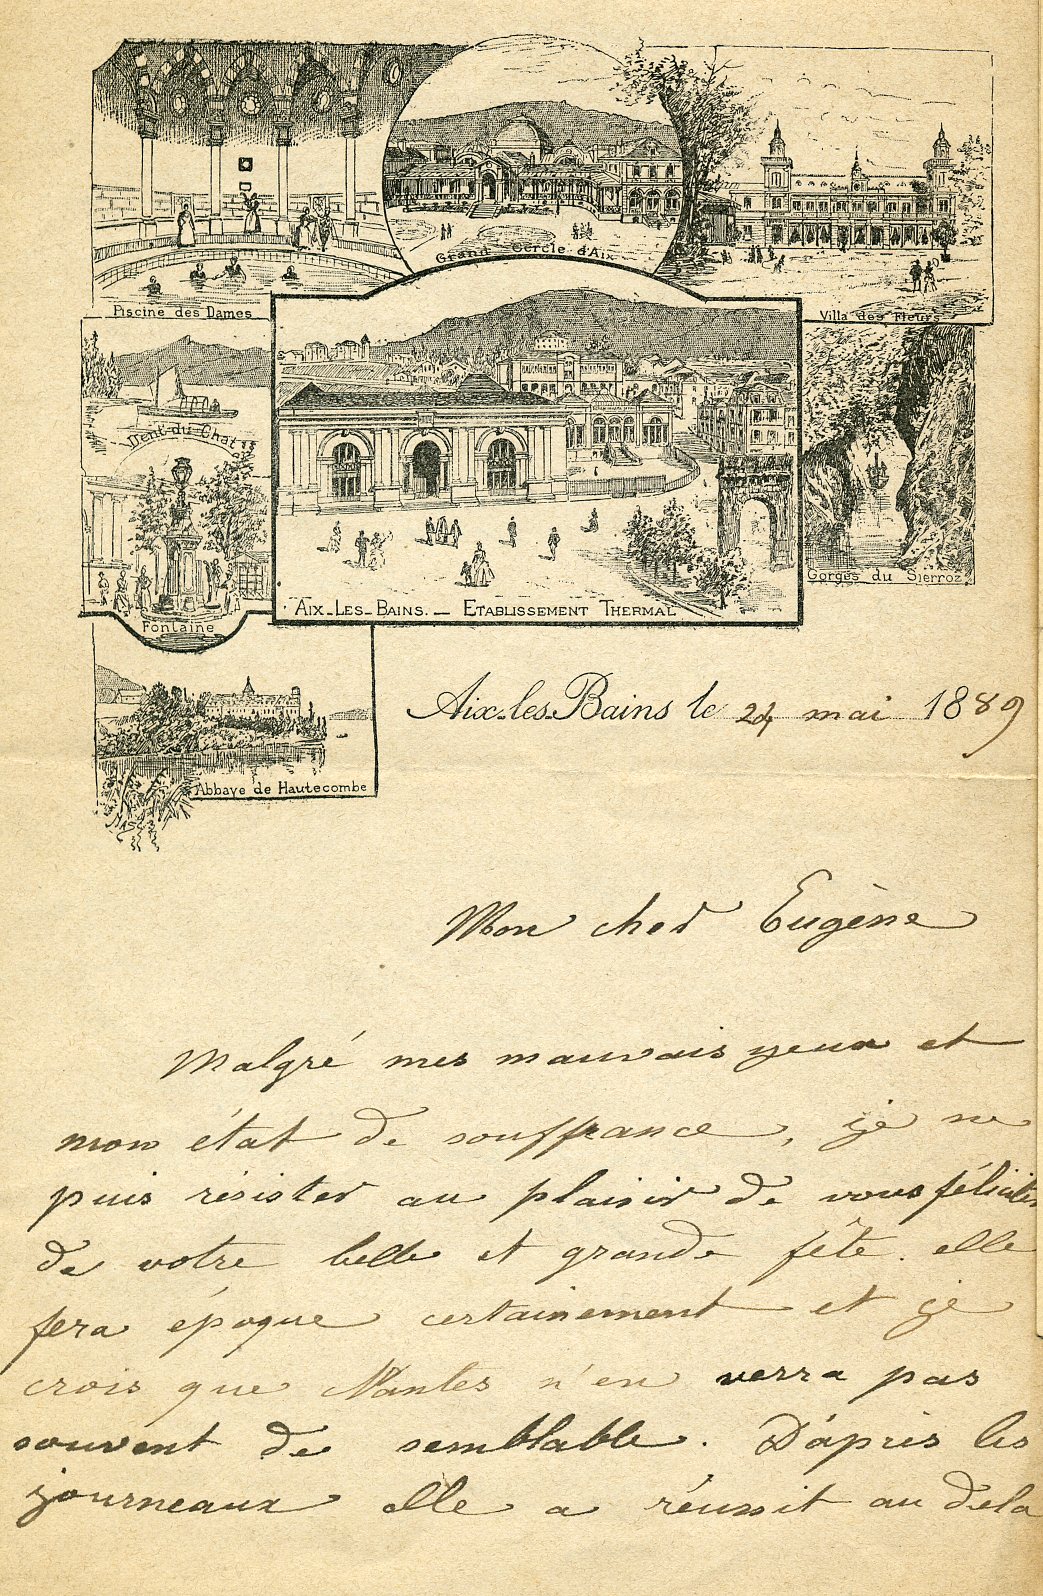 Piscine des Dames
Grand Cercle d'Aix
Villa des Fleurs
Dent du Chat
Fontaine
Aix-Les-Bains. — Etablissement Thermal
Gorges du Sierroz
Abbaye de Hautecombe
Aix-les-Bains le 24 mai 1889
Mon cher Eugène
Malgré mes mauvais yeux et
mon état de souffrance, je ne
puis résister au plaisir de vous féliciter
de votre belle et grande fête. elle
fera époque certainement et je
crois que Nantes n'en verra pas
souvent de semblable. D'après les
journeaux elle a réussit au dela